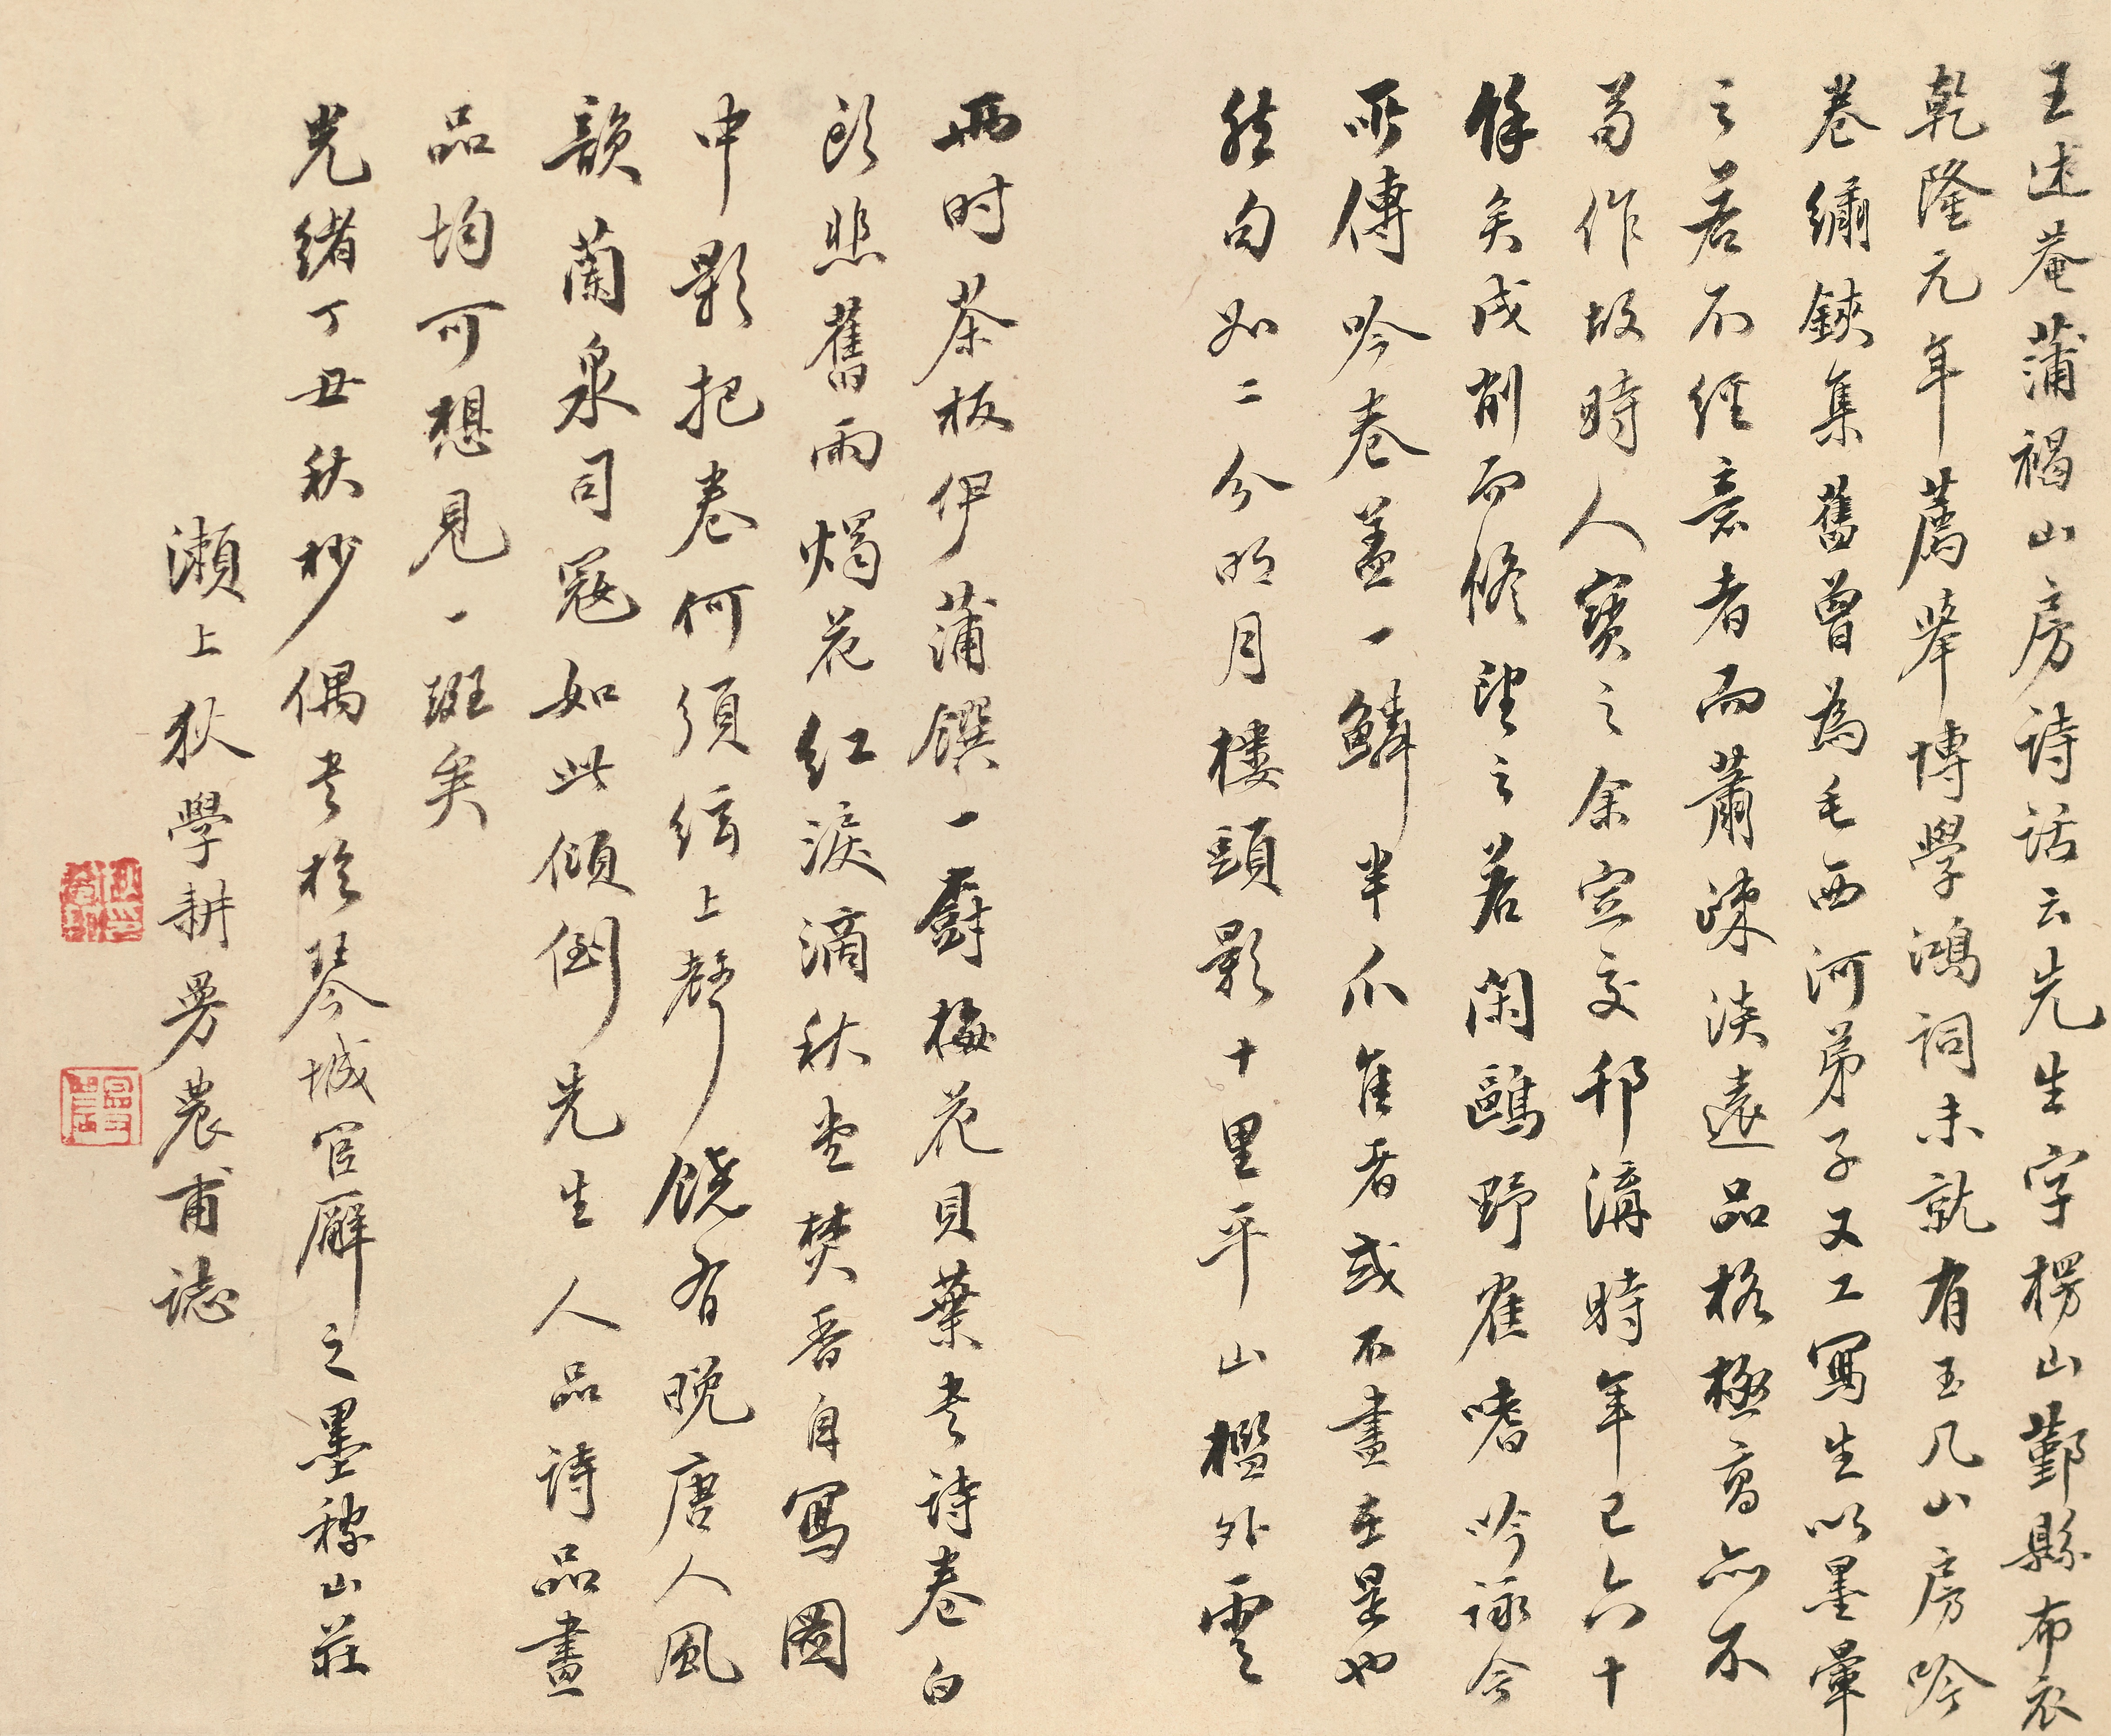 王述菴蒲褐山房诗话云先生字楞山鄞縣布衣
乾隆元年薦举博學鴻詞未就有玉几山房吟
卷繡鋏集舊曾為毛西河弟子又工寫生以墨暈
之若不经意者而蕭疎淡遠品格極高亦不
苟作故時人寶之余定交邗溝時年已六十
餘矣戌削而修望之若閑鷗野雀嗜吟詠今
所傳吟卷盖一鱗半爪隹者或不盡在是也
然句如二分明月樓頭影十里平山檻外雲
兩时茶板伊蒲饌一廚梅花貝葉书诗卷白
頭悲舊雨燭花红淚滴秋堂焚香自寫圖
中影把卷何須絃上聲饒有晚唐人風
韻蘭泉司寇如此傾倒先生人品诗品畫
品均可想見一斑矣
光绪丁丑秋杪偶书於琴城官廨之墨稼山莊
瀨上狄學耕曼農甫誌